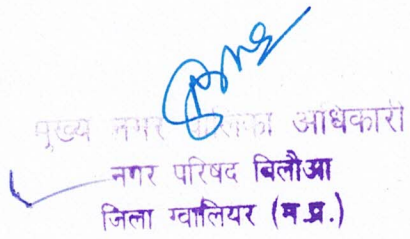 मुख्य नगर पालिका अधिकारी
नगर परिषद बिलौआ
जिला ग्वालियर (म.प्र.)